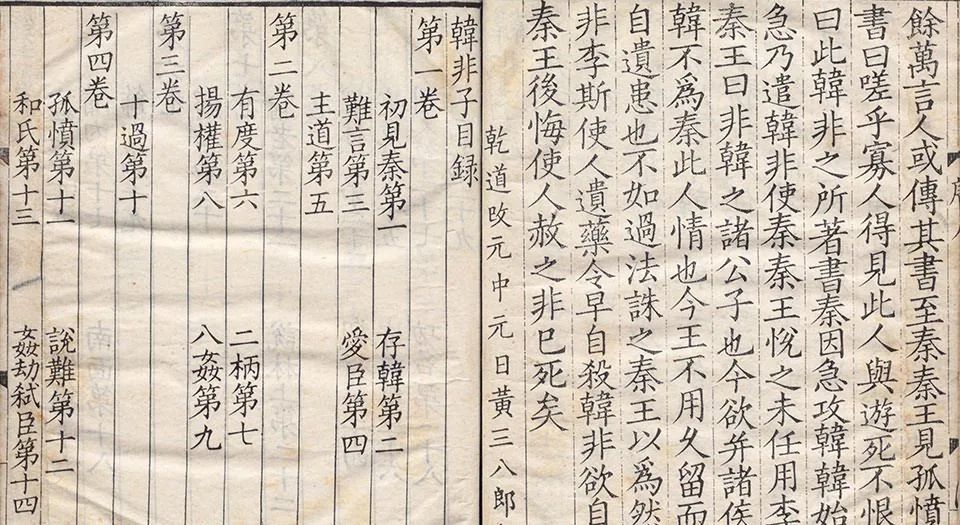 餘萬言人或傳其書至秦秦王見孤憤
書曰嗟乎寡人得見此人與遊死不恨
曰此韓非之所著書秦因急攻韓韓始
急乃遣韓非使秦秦王悅之未任用李
秦王曰非韓之諸公子也今欲并諸侯
韓不爲秦此人情也今王不用久留而
自遺患也不如過法誅之秦王以爲然
非李斯使人遺藥令早自殺韓非欲自
秦王後悔使人赦之非已死矣
乾道改元中元日黃三八郎
韓非子目録
第一卷
初見秦第一 存韓第二
難言第三 愛臣第四
主道第五
第二卷
有度第六 二柄第七
揚權第八 八姦第九
第三卷
十過第十
第四卷
孤憤第十一 說難第十二
和氏第十三 姦劫弑臣第十四